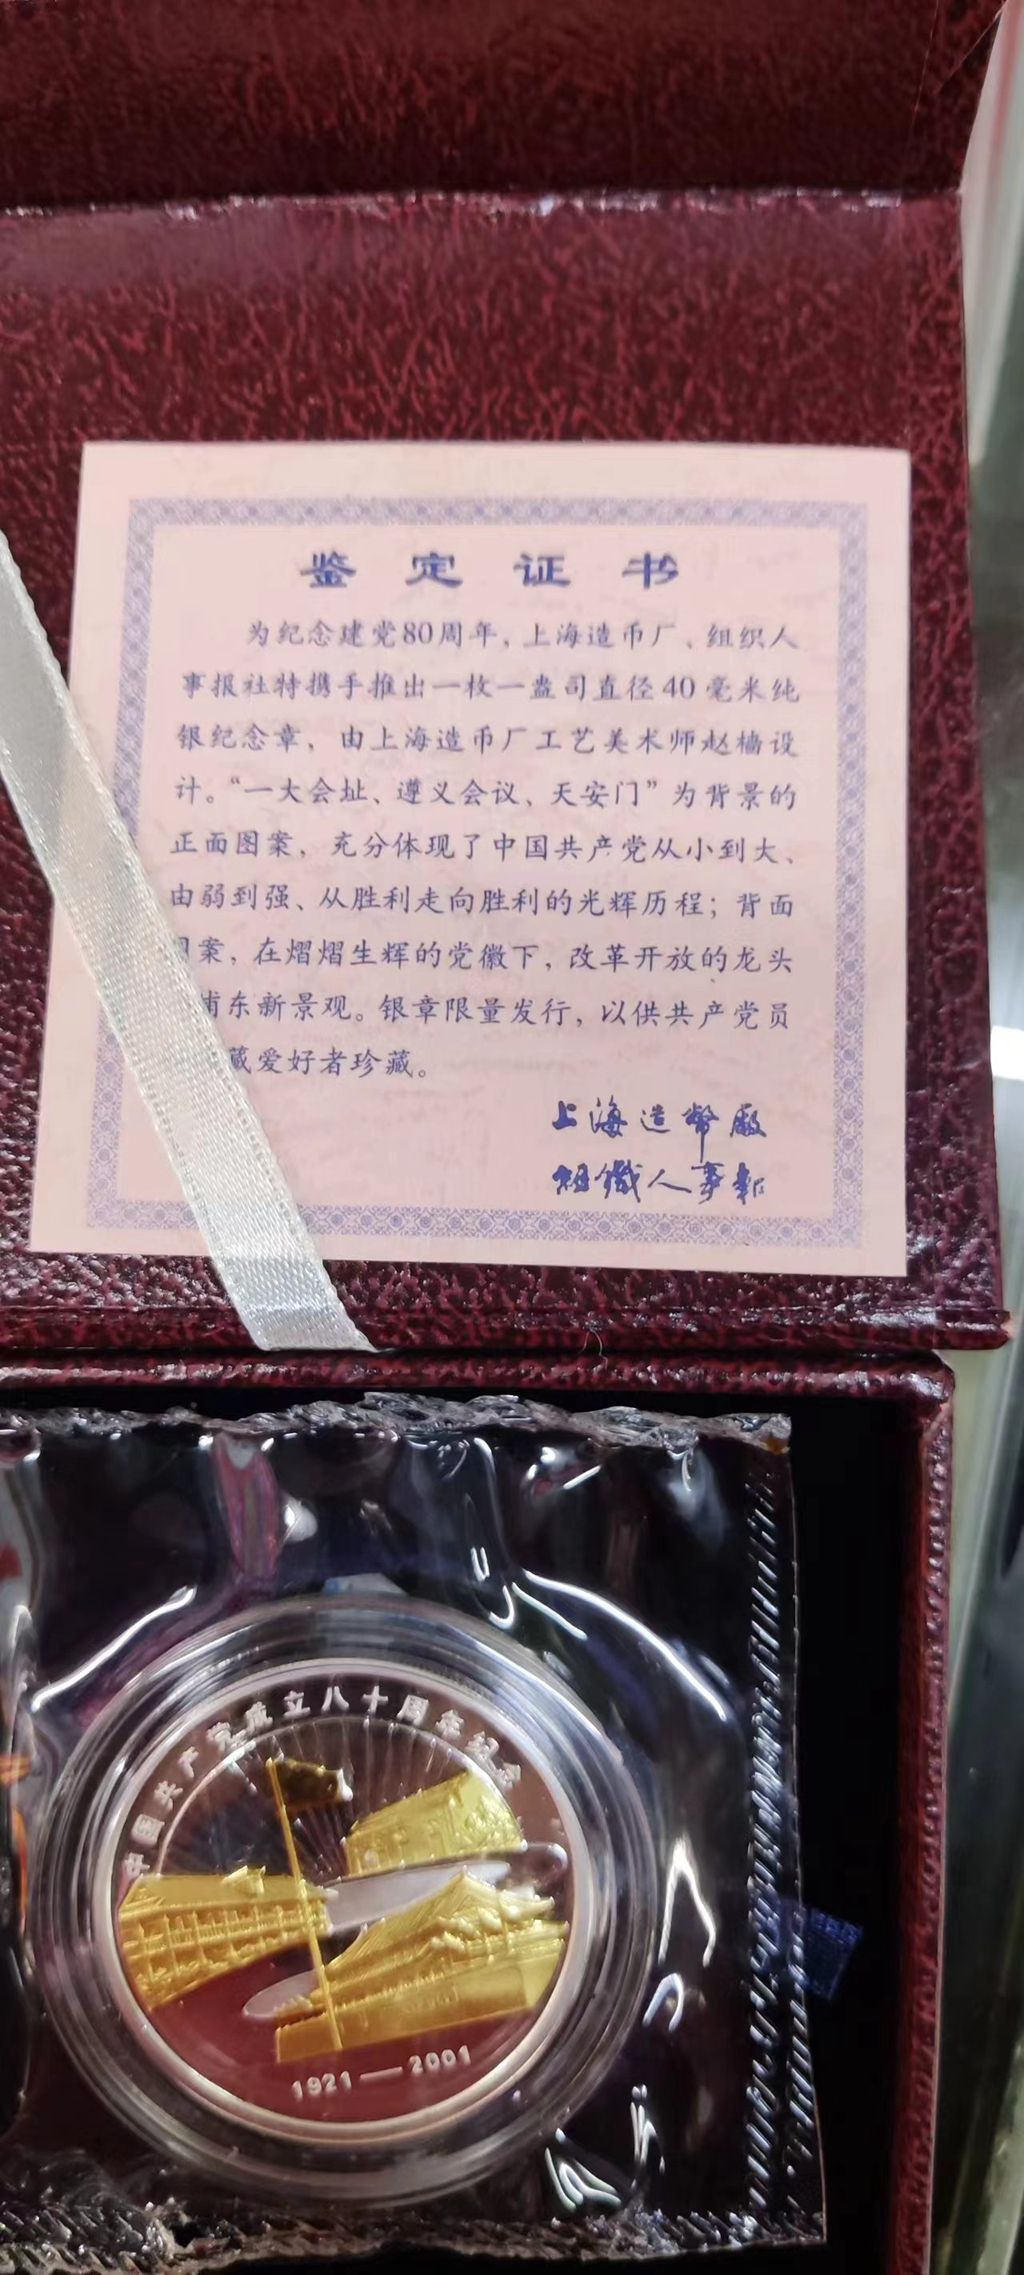 鉴定证书
为纪念建党80周年，上海造币厂、组织人
事报社特携手推出一枚一盎司直径40毫米纯
银纪念章，由上海造币厂工艺美术师赵樯设
计。“一大会址、遵义会议、天安门”为背景的
正面图案，充分体现了中国共产党从小到大、
由弱到强、从胜利走向胜利的光辉历程；背面
图案，在熠熠生辉的党徽下，改革开放的龙头
浦东新景观。银章限量发行，以供共产党员
藏爱好者珍藏。
上海造幣廠
组織人事報
中国共产党成立八十周年纪念
1921—2001